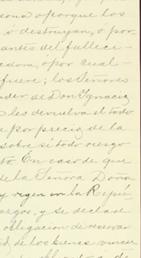 como o porque los
o destruyan, o por
antes del fallece-
cedora, o por cual-
fuere; los Señores
der de Don Ignacio
les devuelva el todo
por precio de la
sobre si todo riesgo
to. En caso de que
de la Señora Doña
y rigen en la Repú-
argos, y se declare
obligacion de reservar
d, de los bienes